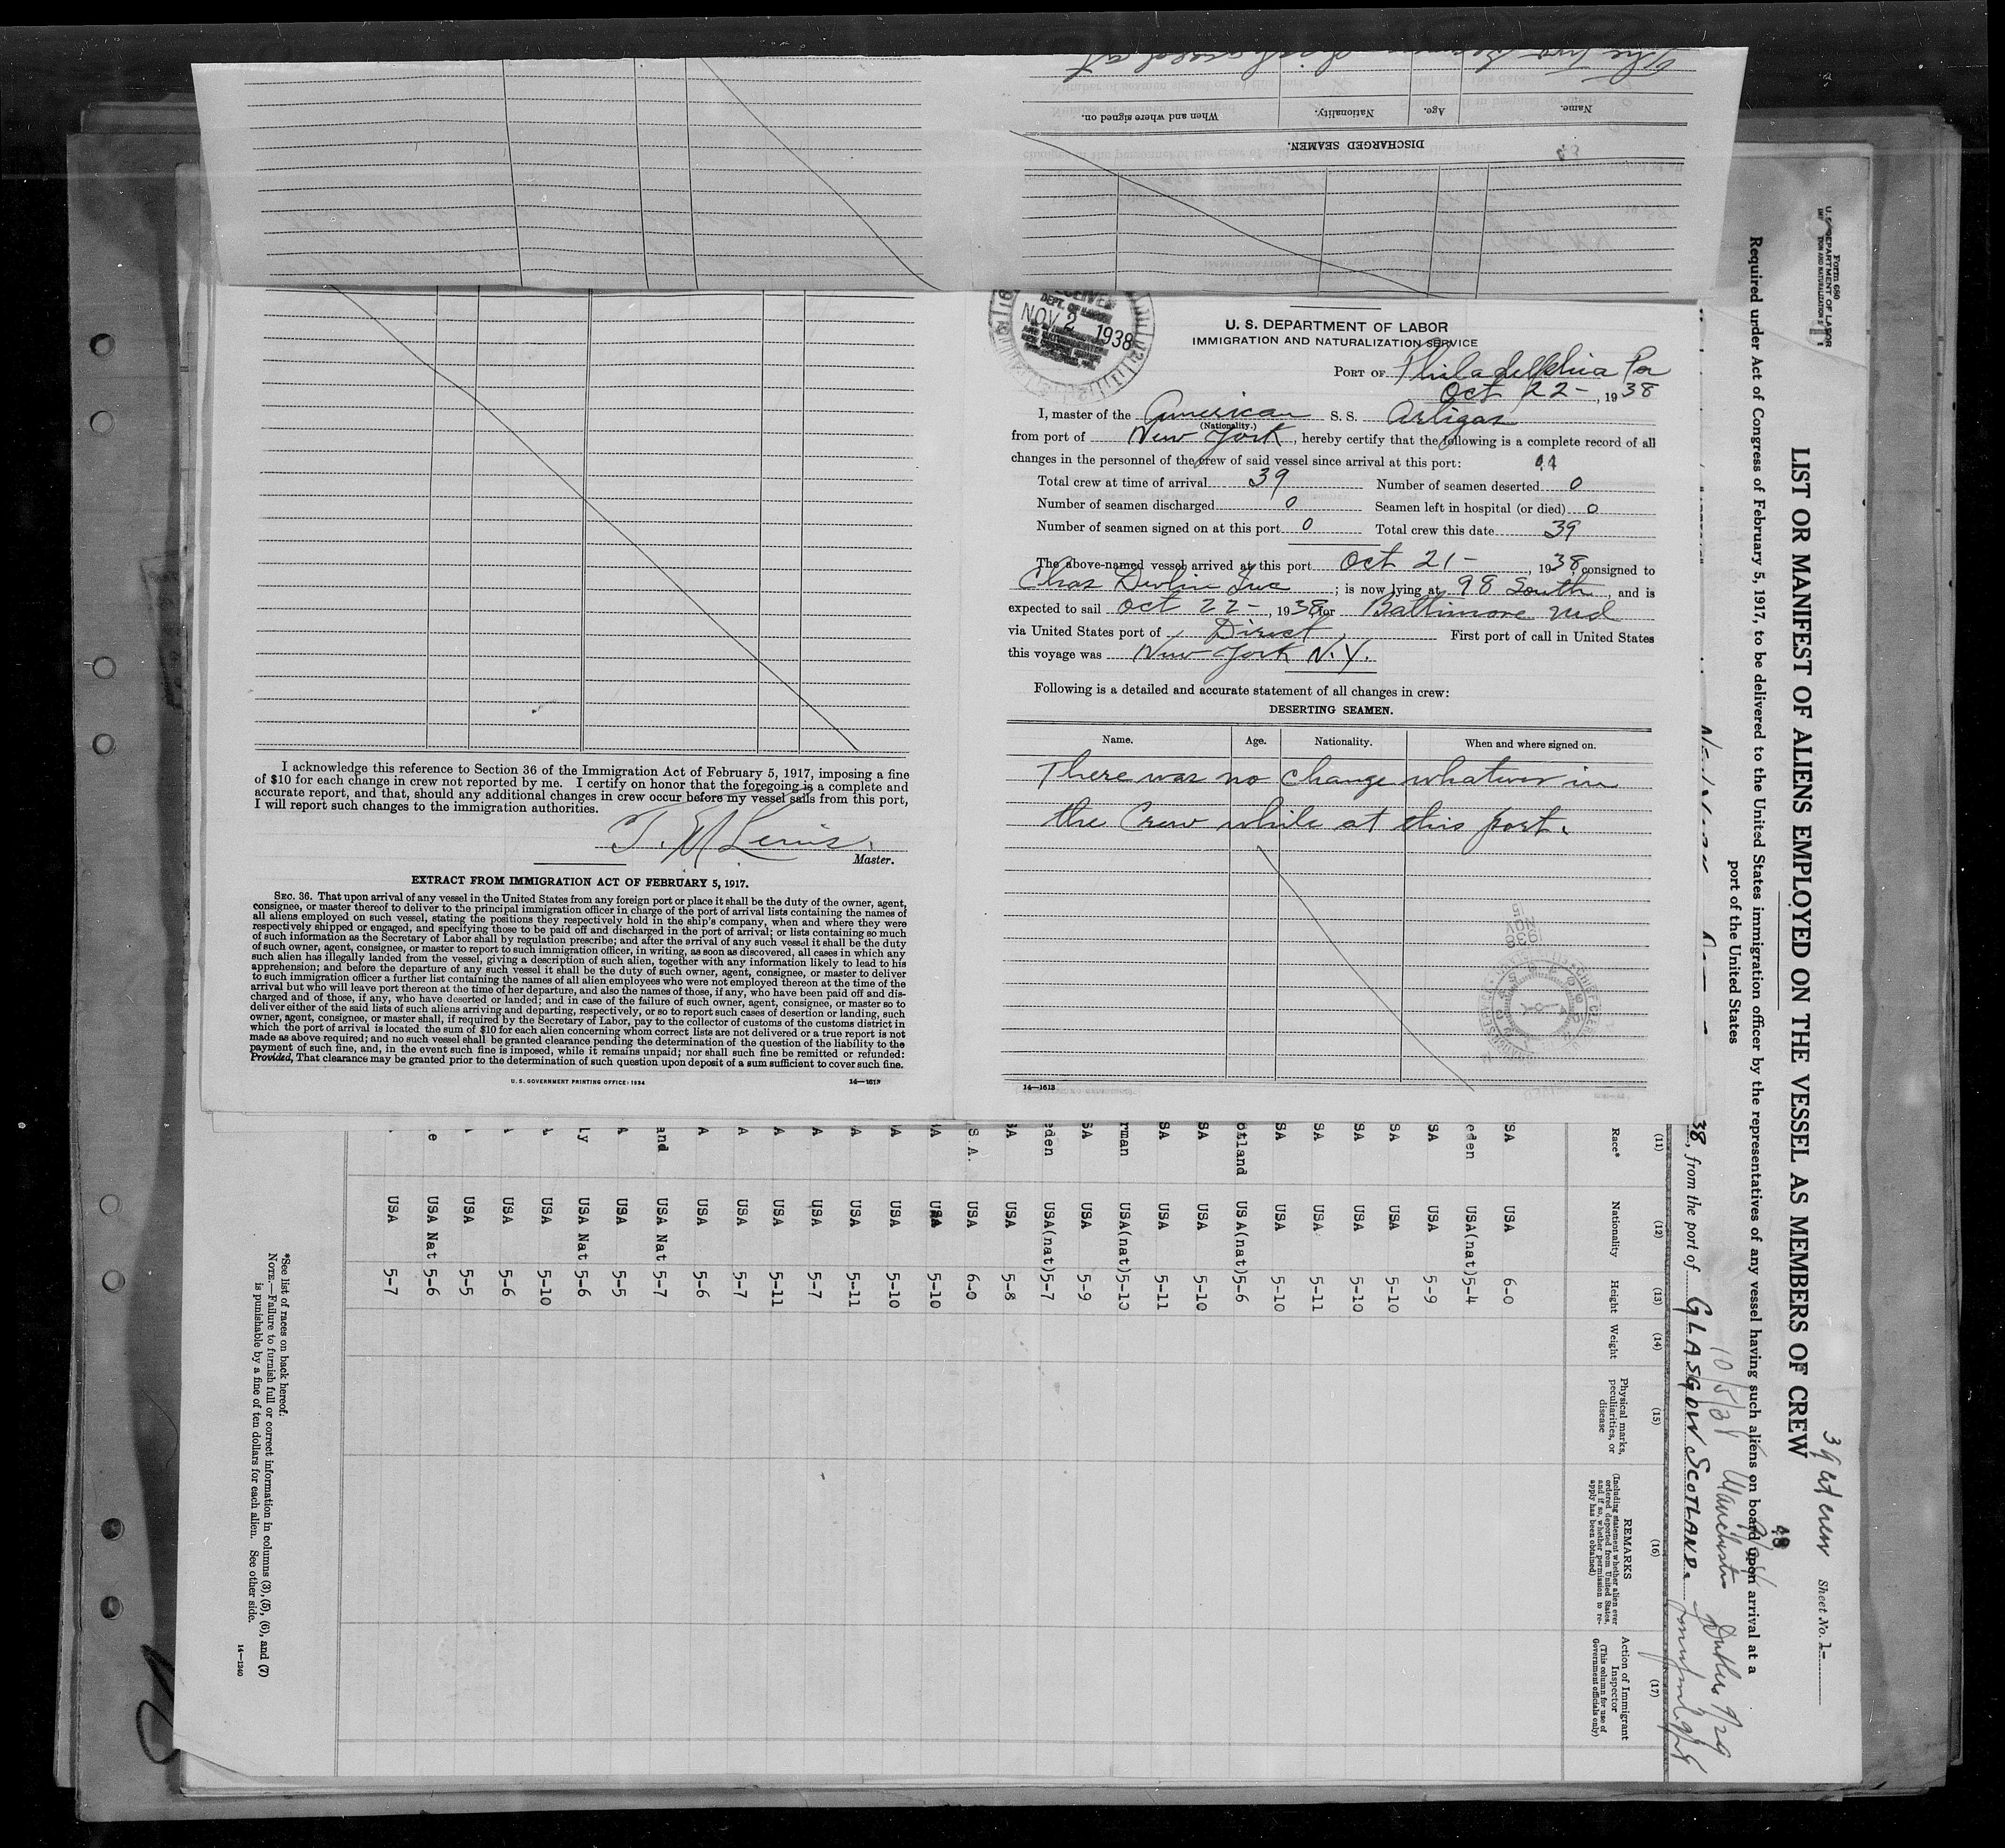 DISCHARGED SEAMEN.
Name.
Age.
Nationality.
When and where signed on.
I acknowledge this reference to Section 36 of the Immigration Act of February 5, 1917, imposing a fine
of $10 for each change in crew not reported by me. I certify on honor that the foregoing is a complete and
accurate report, and that, should any additional changes in crew occur before my vessel sails from this port,
I will report such changes to the immigration authorities.
Master.
EXTRACT FROM IMMIGRATION ACT OF FEBRUARY 5, 1917.
SEC. 36. That upon arrival of any vessel in the United States from any foreign port or place it shall be the duty of the owner, agent,
consignee, or master thereof to deliver to the principal immigration officer in charge of the port of arrival lists containing the names of
all aliens employed on such vessel, stating the positions they respectively hold in the ship's company, when and where they were
respectively shipped or engaged, and specifying those to be paid off and discharged in the port of arrival; or lists containing so much
of such information as the Secretary of Labor shall by regulation prescribe; and after the arrival of any such vessel it shall be the duty
of such owner, agent, consignee, or master to report to such immigration officer, in writing, as soon as discovered, all cases in which any
such alien has illegally landed from the vessel, giving a description of such alien, together with any information likely to lead to his
apprehension; and before the departure of any such vessel it shall be the duty of such owner, agent, consignee, or master to deliver
to such immigration officer a further list containing the names of all alien employees who were not employed thereon at the time of the
arrival but who will leave port thereon at the time of her departure, and also the names of those, if any, who have been paid off and dis-
charged and of those, if any, who have deserted or landed; and in case of the failure of such owner, agent, consignee, or master so to
deliver either of the said lists of such aliens arriving and departing, respectively, or so to report such cases of desertion or landing, such
owner, agent, consignee, or master shall, if required by the Secretary of Labor, pay to the collector of customs of the customs district in
which the port of arrival is located the sum of $10 for each alien concerning whom correct lists are not delivered or a true report is not
made as above required; and no such vessel shall be granted clearance pending the determination of the question of the liability to the
payment of such fine, and, in the event such fine is imposed, while it remains unpaid; nor shall such fine be remitted or refunded:
Provided, That clearance may be granted prior to the determination of such question upon deposit of a sum sufficient to cover such fine.
U.S. GOVERNMENT PRINTING OFFICE: 1934
14—1613
DEPT. OF LABOR
NOV 2 1938
U. S. DEPARTMENT OF LABOR
IMMIGRATION AND NATURALIZATION SERVICE
PORT OF Philadelphia Pa
Oct 22 -, 1938
I, master of the American S. S. Artigas
(Nationality.)
from port of New York, hereby certify that the following is a complete record of all
changes in the personnel of the crew of said vessel since arrival at this port:
Total crew at time of arrival 39 Number of seamen deserted 0
Number of seamen discharged 0 Seamen left in hospital (or died) 0
Number of seamen signed on at this port 0 Total crew this date 39
The above-named vessel arrived at this port Oct 21 -, 1938, consigned to
Chas Devlin Inc; is now lying at 98 South, and is
expected to sail Oct 22 -, 1938, for Baltimore Md
via United States port of Direct, First port of call in United States
this voyage was New York N.Y.
Following is a detailed and accurate statement of all changes in crew:
DESERTING SEAMEN.
Name. Age. Nationality. When and where signed on.
There was no change whatever in
the Crew while at this port.
14—1613
Form 680
U. S. DEPARTMENT OF LABOR
LIST OR MANIFEST OF ALIENS EMPLOYED ON THE VESSEL AS MEMBERS OF CREW
Sheet No. 1-
Required under Act of Congress of February 5, 1917, to be delivered to the United States immigration officer by the representatives of any vessel having such aliens on board upon arrival at a
port of the United States
38, from the port of GLASGOW SCOTLAND.
(11) (12) (13) (14) (15) (16) (17)
Race*
Nationality
Height
Weight
Physical marks, peculiarities, or disease
REMARKS
(Including statement whether alien ever ordered deported from United States, and if so, whether permission to reapply has been obtained)
Action of Immigrant Inspector
(This column for use of Government officials only)
SA USA 6-0
eden USA(nat)5-4
SA USA 5-9
SA USA 5-10
SA USA 5-10
SA USA 5-11
SA USA 5-10
otland USA(nat)5-6
SA USA 5-10
SA USA 5-11
rman USA(nat)5-10
SA USA 5-9
eden USA(nat)5-7
SA USA 5-8
S.A. USA 6-0
A USA 5-10
A USA 5-10
A USA 5-11
A USA 5-7
A USA 5-11
A USA 5-7
A USA 5-6
and USA Nat 5-7
A USA 5-5
ly USA Nat 5-6
USA 5-10
USA 5-6
USA 5-5
e USA Nat 5-6
USA 5-7
*See list of races on back hereof.
NOTE.—Failure to furnish full or correct information in columns (3), (5), (6), and (7)
is punishable by a fine of ten dollars for each alien. See other side.
14—1240